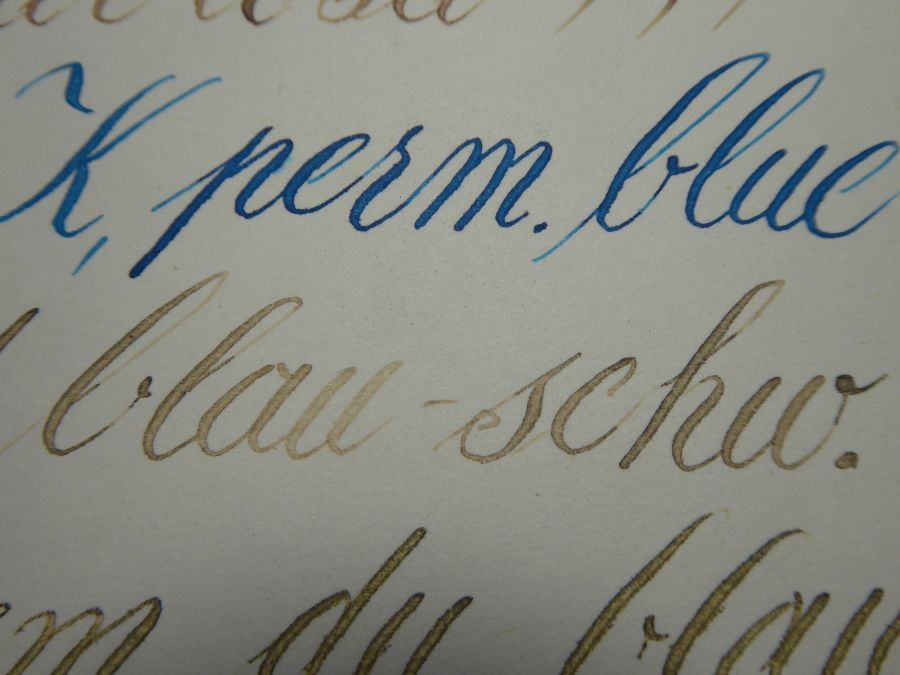 K, perm. blue
blau-schw.
du blau